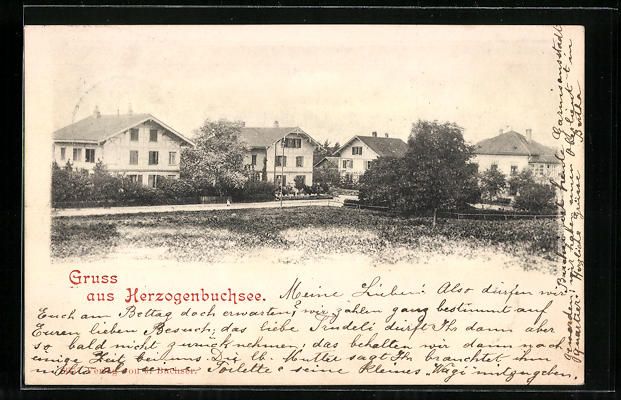 Gruss
aus Herzogenbuchsee.
Meine Lieben! Also dürfen wir
Euch am Bettag doch erwarten; wir zählen ganz bestimmt auf
Euren lieben Besuch; das liebe Trudeli dürft Ihr dann aber
so bald nicht zurück nehmen; das behalten wir dann noch
einige Zeit bei uns. Die lb. Mutter sagt Ihr brauchtet ihm
nichts als seine Toilette & seine kleines "Wägi" mitzugeben.
Verlag von Bachser.
heute Garnisonsstadt
haben oben
Herzliche Grüsse Bertha